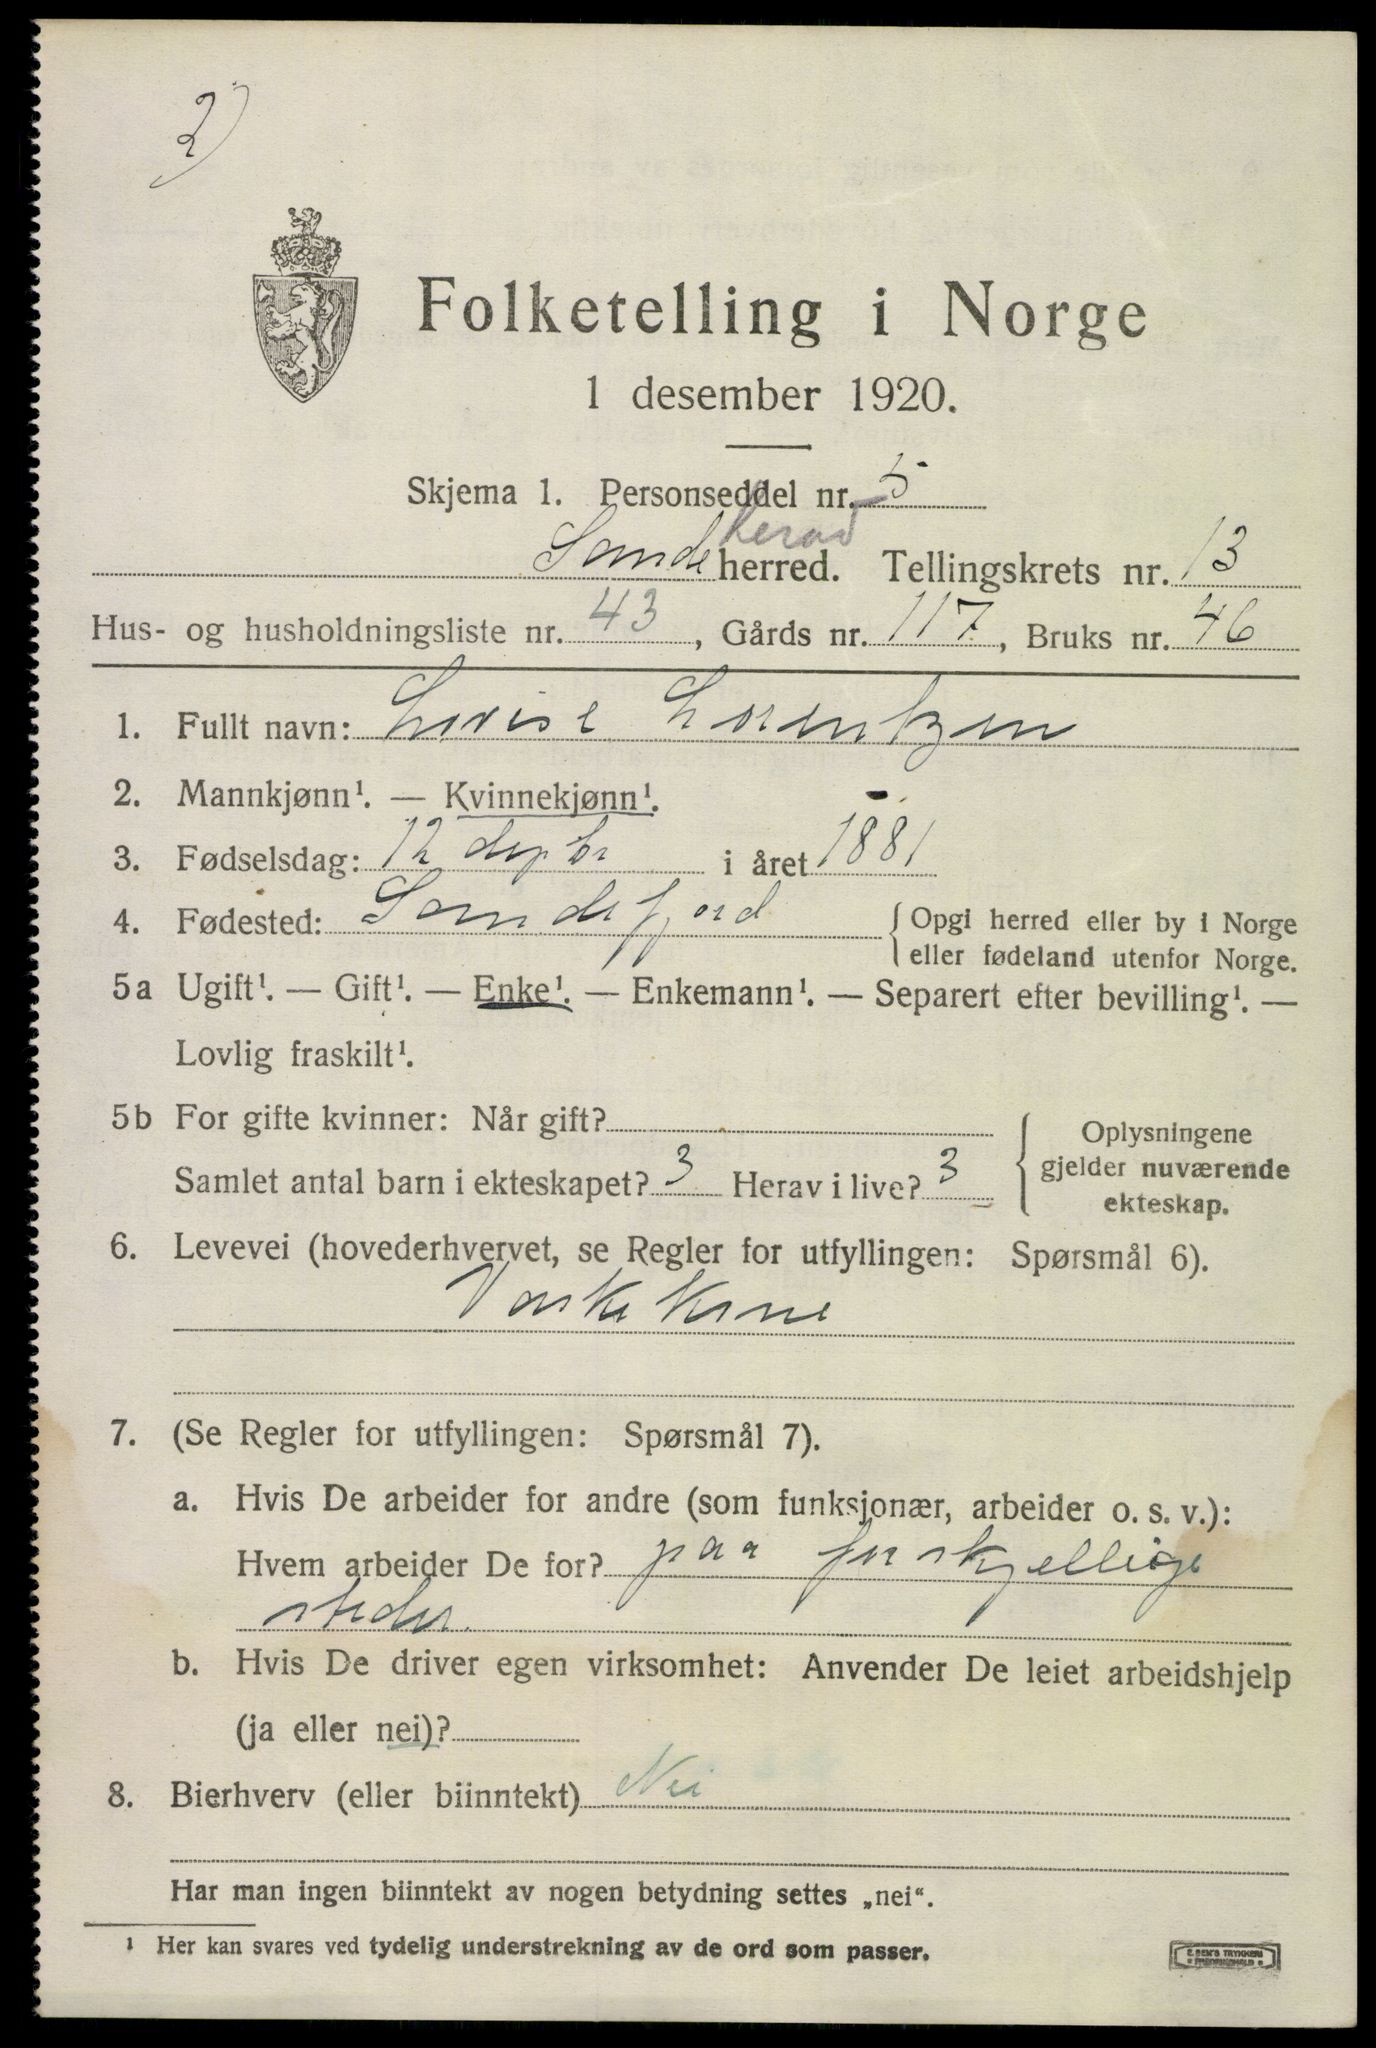 2)
Folketelling i Norge
1 desember 1920.
Skjema 1. Personseddel nr. 5
herad
Sande herred. Tellingskrets nr. 13
Hus- og husholdningsliste nr. 43, Gårds nr. 117, Bruks nr. 46
1. Fullt navn: Lovise Lorentzen
2. Mannkjønn¹. — Kvinnekjønn¹.
3. Fødselsdag: 12 i året 1881
4. Fødested: Sandefjord { Opgi herred eller by i Norge
eller fødeland utenfor Norge.
5a Ugift¹. — Gift¹. — Enke¹. — Enkemann¹. — Separert efter bevilling¹. —
Lovlig fraskilt¹.
5b For gifte kvinner: Når gift?
Samlet antal barn i ekteskapet? 3 Herav i live? 3
Oplysningene
gjelder nuværende
ekteskap.
6. Levevei (hovederhvervet, se Regler for utfyllingen: Spørsmål 6).
Vaskekone
7. (Se Regler for utfyllingen: Spørsmål 7).
a. Hvis De arbeider for andre (som funksjonær, arbeider o. s. v.):
Hvem arbeider De for? paa forskjellige
steder.
b. Hvis De driver egen virksomhet: Anvender De leiet arbeidshjelp
(ja eller nei)?
8. Bierhverv (eller biinntekt) Nei
Har man ingen biinntekt av nogen betydning settes „nei“.
¹ Her kan svares ved tydelig understrekning av de ord som passer.
E. SEM'S TRYKKERI
FREDRIKSHALD